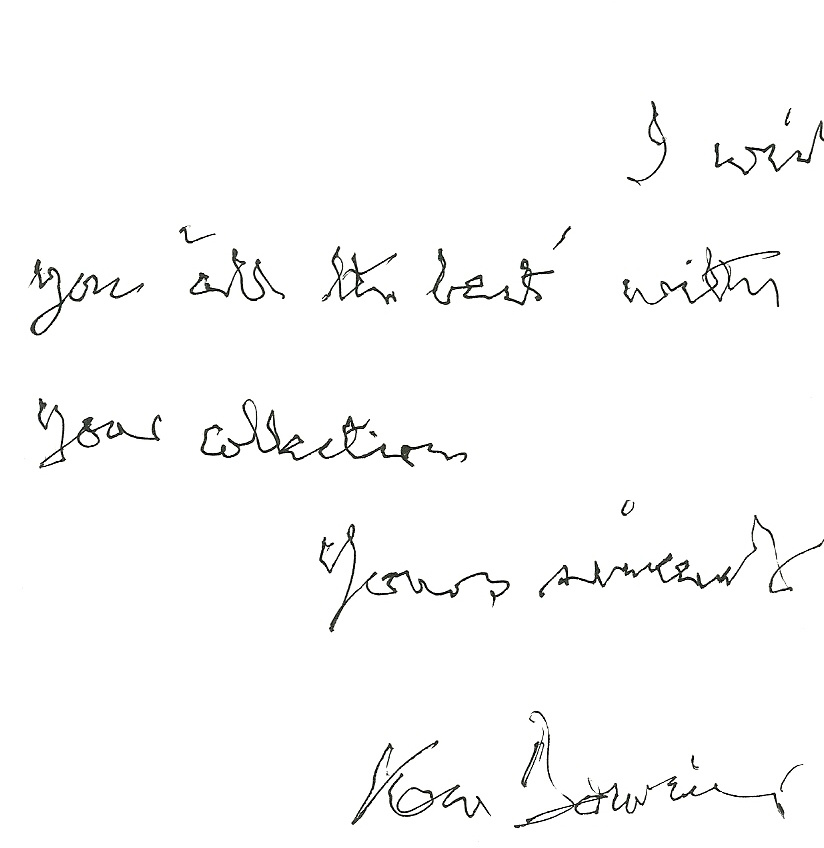 I wish
you 'all the best' with
your collection
Yours sincerely